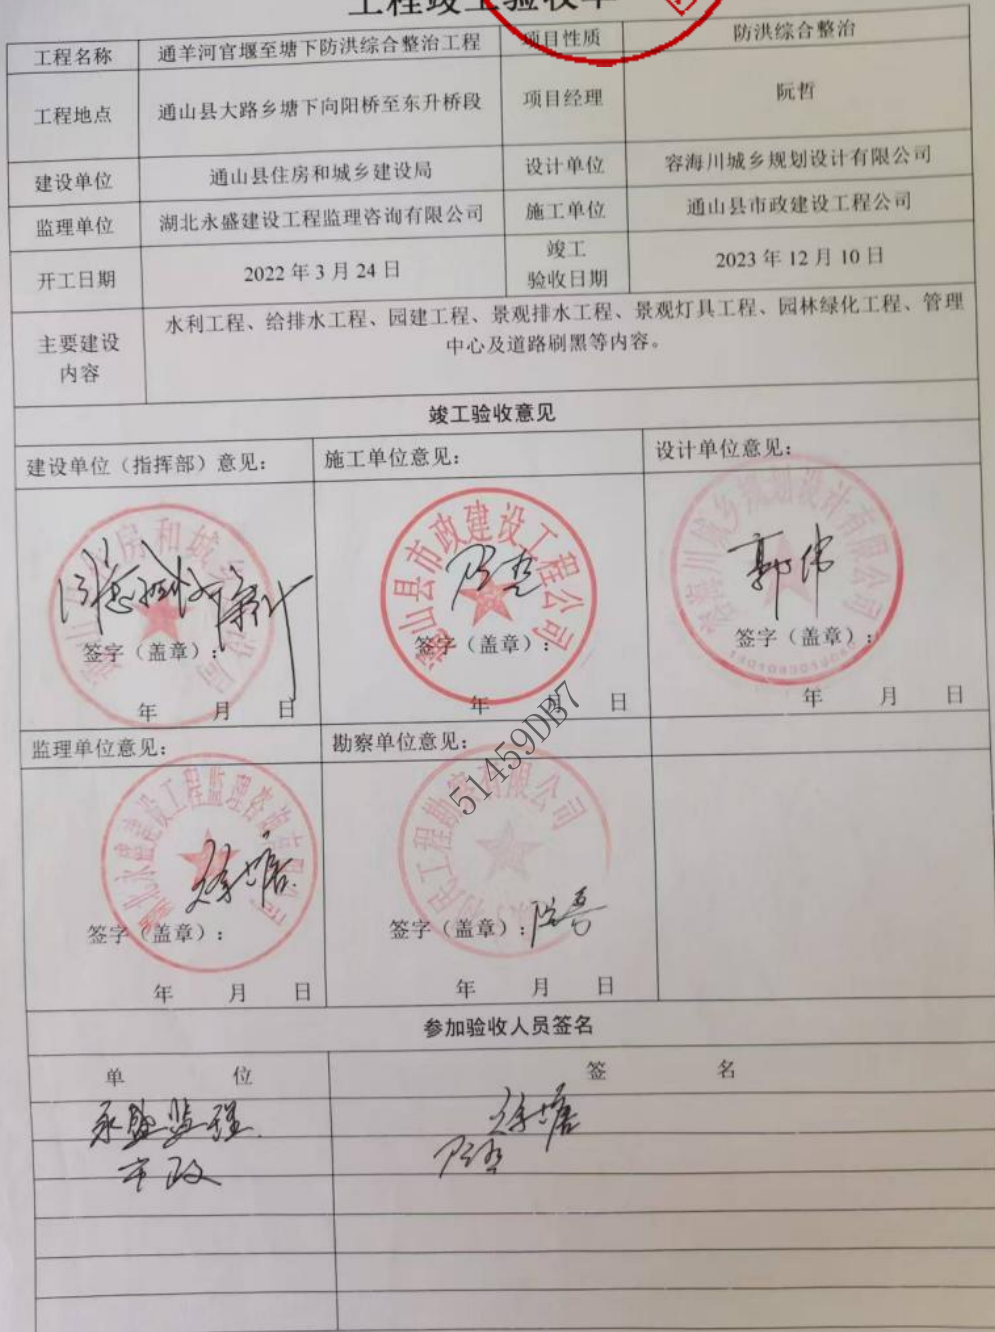 工程竣工验收单
工程名称 通羊河官堰至塘下防洪综合整治工程 项目性质 防洪综合整治
工程地点 通山县大路乡塘下向阳桥至东升桥段 项目经理 阮哲
建设单位 通山县住房和城乡建设局 设计单位 容海川城乡规划设计有限公司
监理单位 湖北永盛建设工程监理咨询有限公司 施工单位 通山县市政建设工程公司
开工日期 2022年3月24日 竣工
验收日期 2023年12月10日
主要建设
内容
水利工程、给排水工程、园建工程、景观排水工程、景观灯具工程、园林绿化工程、管理
中心及道路刷黑等内容。
竣工验收意见
建设单位（指挥部）意见： 施工单位意见： 设计单位意见：
房和城乡
通山县市政建设工程公司
容海川城乡规划设计有限公司
郭伟
签字（盖章）： 签字（盖章）： 签字（盖章）：
年 月 日 年 月 日 年 月 日
51459DB7
监理单位意见： 勘察单位意见：
湖北永盛建设工程监理咨询有限公司
工程勘察有限公司
签字（盖章）： 签字（盖章）：
年 月 日 年 月 日
参加验收人员签名
单 位 签 名
永盛监理
市政 阮哲